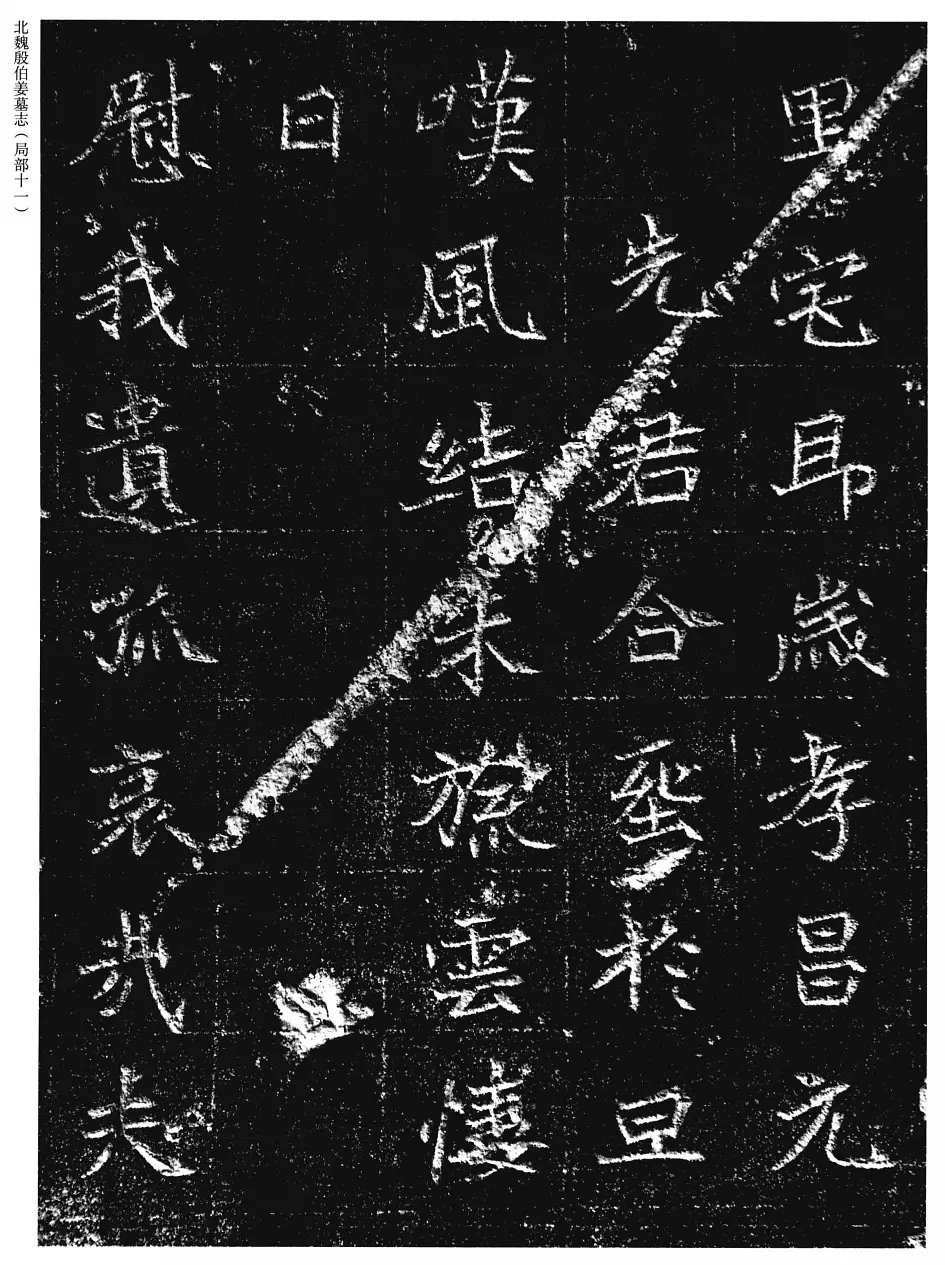 北魏殷伯姜墓志（局部十一）
里宅即歲孝昌元
先君合葬於旦
嘆風結旒雲悽
曰
慰我遺孤哀哉